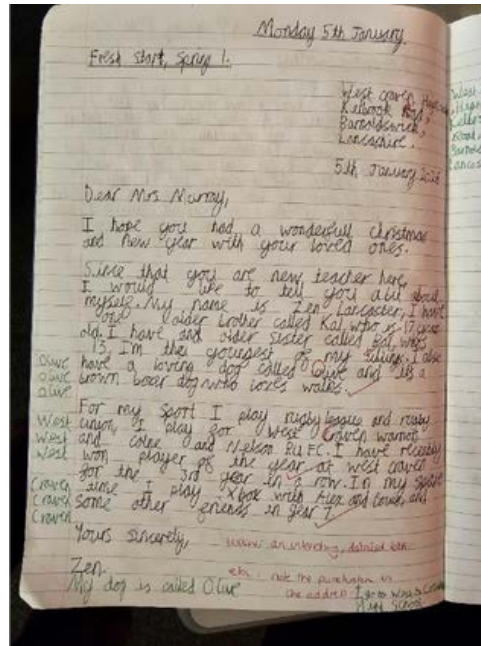 Monday 5th January.
Fresh start, Spring 1.
West craven High
Kelbrook Road,
Barnoldswick,
Lancashire.
5th January 2026
Dear Mrs Murray,
I hope you had a wonderfull christmas
and new year with your loved ones.
Since that you are new teacher here,
I would like to tell you a bit about
myself. My name is Zen Lancaster, I have
one older brother called Kal, who is 17 years
old. I have and older sister called
13, I'm the youngest of my siblings. I also
have a loving dog called Olive and it's a
brown boxer dog who loves walks.
Olive
olive
olive
For my sport I play rugby league and rugby
union, I play for West Craven warriors
and colne and Nelson RUFC. I have recently
won player of the year at west craven
for the 3rd year in a row. In my spare
time I play xbox with Alex and Louie, and
some other friends in year 7.
West
West
West
Craven
Craven
Craven
Yours sincerely,
Zen.
My dog is called Olive
an interesting, detailed
note the punctuation in
the address
I go to West Craven
High School